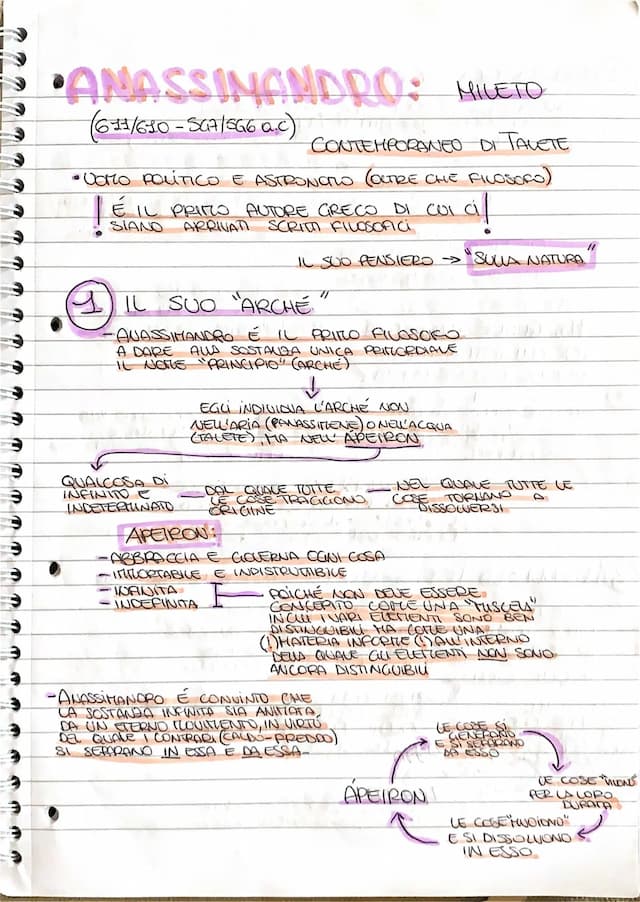 ANASSIMANDRO: MILETO
(611/610 - 547/546 a.C)
CONTEMPORANEO DI TALETE
• UOMO POLITICO E ASTRONOMO (OLTRE CHE FILOSOFO)
! É IL PRIMO AUTORE GRECO DI CUI CI !
SIANO ARRIVATI SCRITTI FILOSOFICI
IL SUO PENSIERO → "SULLA NATURA"
1 IL SUO "ARCHÉ"
- ANASSIMANDRO É IL PRIMO FILOSOFO
A DARE ALLA SOSTANZA UNICA PRIMORDIALE
IL NOME "PRINCIPIO" (ARCHÉ)
↓
EGLI INDIVIDUA L'ARCHÉ NON
NELL'ARIA (ANASSIMENE) O NELL'ACQUA
(TALETE), MA NELL'ÁPEIRON
QUALCOSA DI
INFINITO E
INDETERMINATO
— DAL QUALE TUTTE
LE COSE TRAGGONO
ORIGINE
— NEL QUALE TUTTE LE
COSE TORNANO A
DISSOLVERSI
APEIRON:
- ABBRACCIA E GOVERNA OGNI COSA
- IMMORTABILE E INDISTRUTTIBILE
- INFINITA
- INDEFINITA
POICHÉ NON DEVE ESSERE
CONCEPITO COME UNA "MISCELA"
IN CUI I VARI ELEMENTI SONO BEN
DISTINGUIBILI MA COME UNA
(!) MATERIA INFORME (!) ALL'INTERNO
DELLA QUALE GLI ELEMENTI NON SONO
ANCORA DISTINGUIBILI
- ANASSIMANDRO É CONVINTO CHE
LA SOSTANZA INFINITA SIA ANIMATA,
DA UN ETERNO MOVIMENTO, IN VIRTÚ
DEL QUALE I CONTRARI (CALDO-FREDDO)
SI SEPARANO IN ESSA E DA ESSA
ÁPEIRON
LE COSE SI
GENERANO
E SI SEPARANO
DA ESSO
LE COSE "VIVONO"
PER LA LORO
DURATA
LE COSE "MUOIONO"
E SI DISSOLVONO
IN ESSO